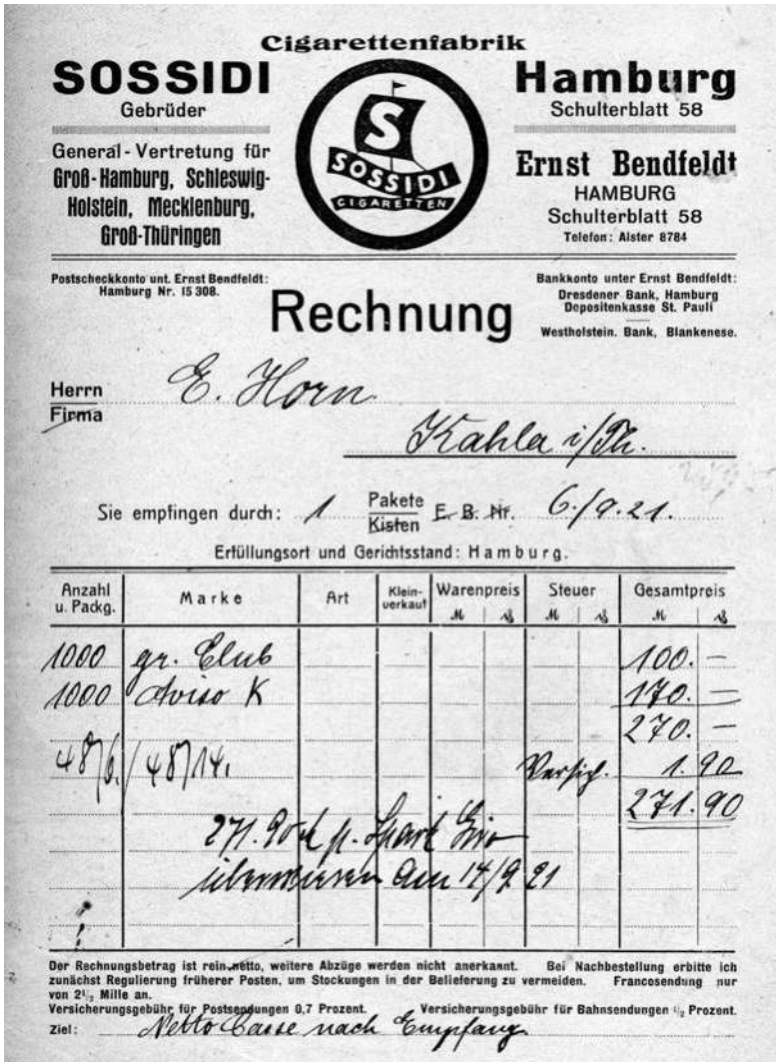 Cigarettenfabrik
SOSSIDI
Gebrüder
General-Vertretung für
Groß-Hamburg, Schleswig-
Holstein, Mecklenburg,
Groß-Thüringen
S
SOSSIDI
CIGARETTEN
Hamburg
Schulterblatt 58
Ernst Bendfeldt
HAMBURG
Schulterblatt 58
Telefon: Alster 8784
Postscheckkonto unt. Ernst Bendfeldt:
Hamburg Nr. 15 308.
Rechnung
Bankkonto unter Ernst Bendfeldt:
Dresdener Bank, Hamburg
Depositenkasse St. Pauli
Westholstein. Bank, Blankenese.
Herrn E. Horn
Firma
Kahla i/Th.
Sie empfingen durch: 1 Pakete E. B. Nr. 6./9.21.
Kisten
Erfüllungsort und Gerichtsstand: Hamburg.
Anzahl u. Packg. Marke Art Klein-verkauf Warenpreis Steuer Gesamtpreis
M ₰ M ₰ M ₰
1000 gr. Club 100. —
1000 Aviso K 170. —
270. —
48/6. / 48/14. Versich. 1.90
271.90
271.90 p. Giro
überwiesen am 14/9 21
Der Rechnungsbetrag ist rein netto, weitere Abzüge werden nicht anerkannt. Bei Nachbestellung erbitte ich
zunächst Regulierung früherer Posten, um Stockungen in der Belieferung zu vermeiden. Francosendung nur
von 2½ Mille an.
Versicherungsgebühr für Postsendungen 0,7 Prozent. Versicherungsgebühr für Bahnsendungen ½ Prozent.
Ziel: Netto Casse nach Empfang